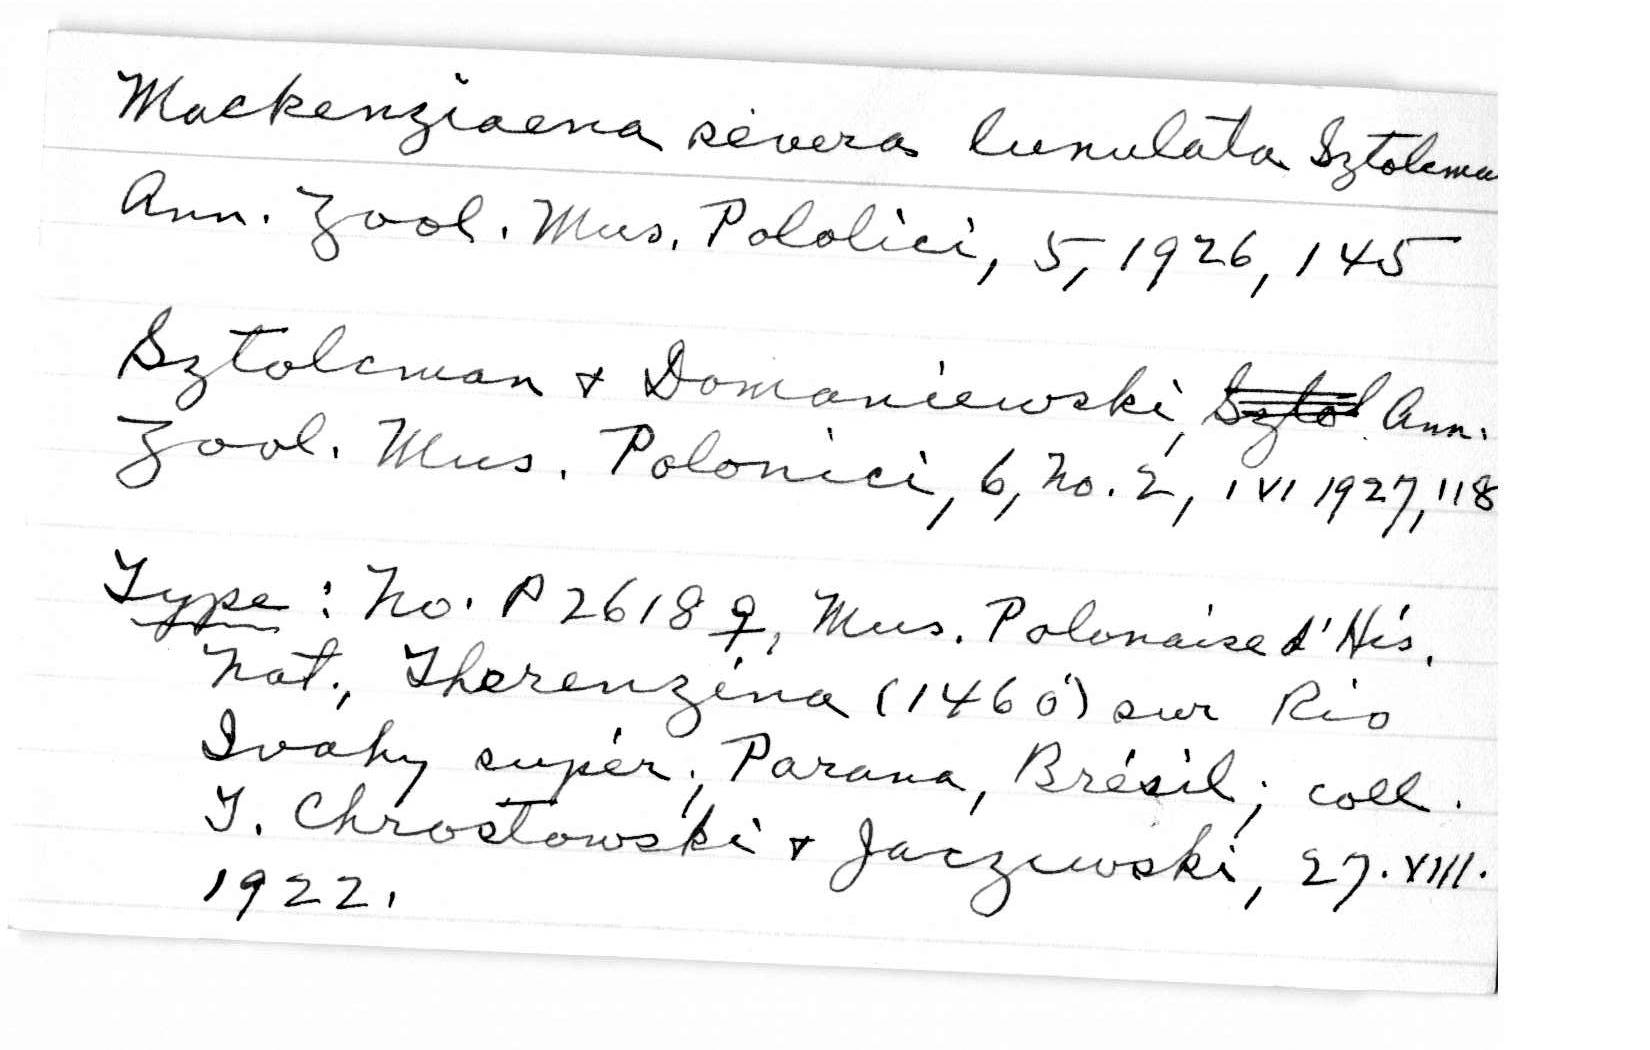 Mackenziaena severa lunulata Sztolcma
Ann. Zool. Mus. Pololici, 5, 1926, 145
Sztolcman & Domaniewski, Sztol Ann.
Zool. Mus. Polonici, 6, No. 2, 1 VI 1927, 118
Type: No. P 2618 ♀, Mus. Polonaise d'His.
Nat., Therenzina (1460) sur Rio
Ivahy supér., Parana, Brésil; coll.
T. Chrostowski & Jaczewski, 27.VIII.
1922.